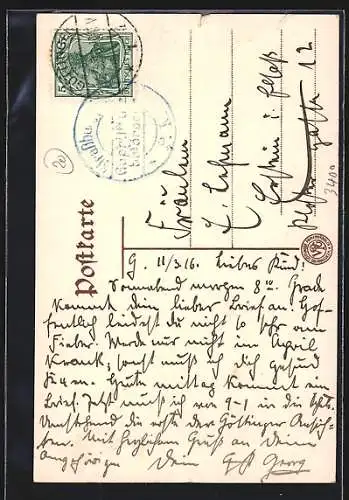 GÖTTINGEN
Postkarte
Fräulein
L. Lehmann
Erstein i. Elsaß
12
3400
20
G. 11/3.16. Liebes Kind!
Sonnabend morgen 8 Uhr. Grade
kommt dein lieber Brief an. Hof-
fentlich leidest du nicht so sehr am
Fieber. Werde nur nicht im April
krank, sonst muß ich dich gesund
Heute mittag kommt ein
Brief. Jetzt muß ich von 9-1 in die
Umstehend die erste der Göttinger Ansich-
ten. Mit herzlichem Gruß an deine
Angehörigen Dein Georg